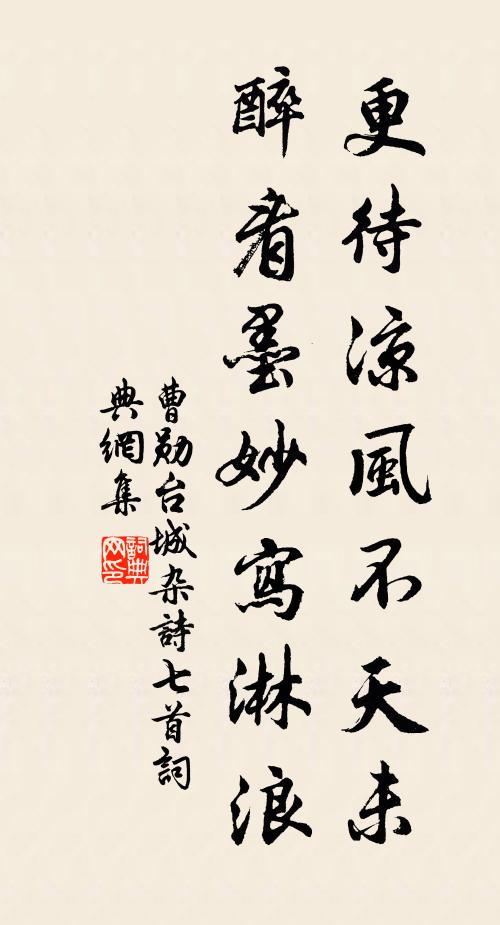 更待涼風不天未
醉看墨妙寫淋浪
曹勛台城杂詩七首詞
典網集
詞典網印